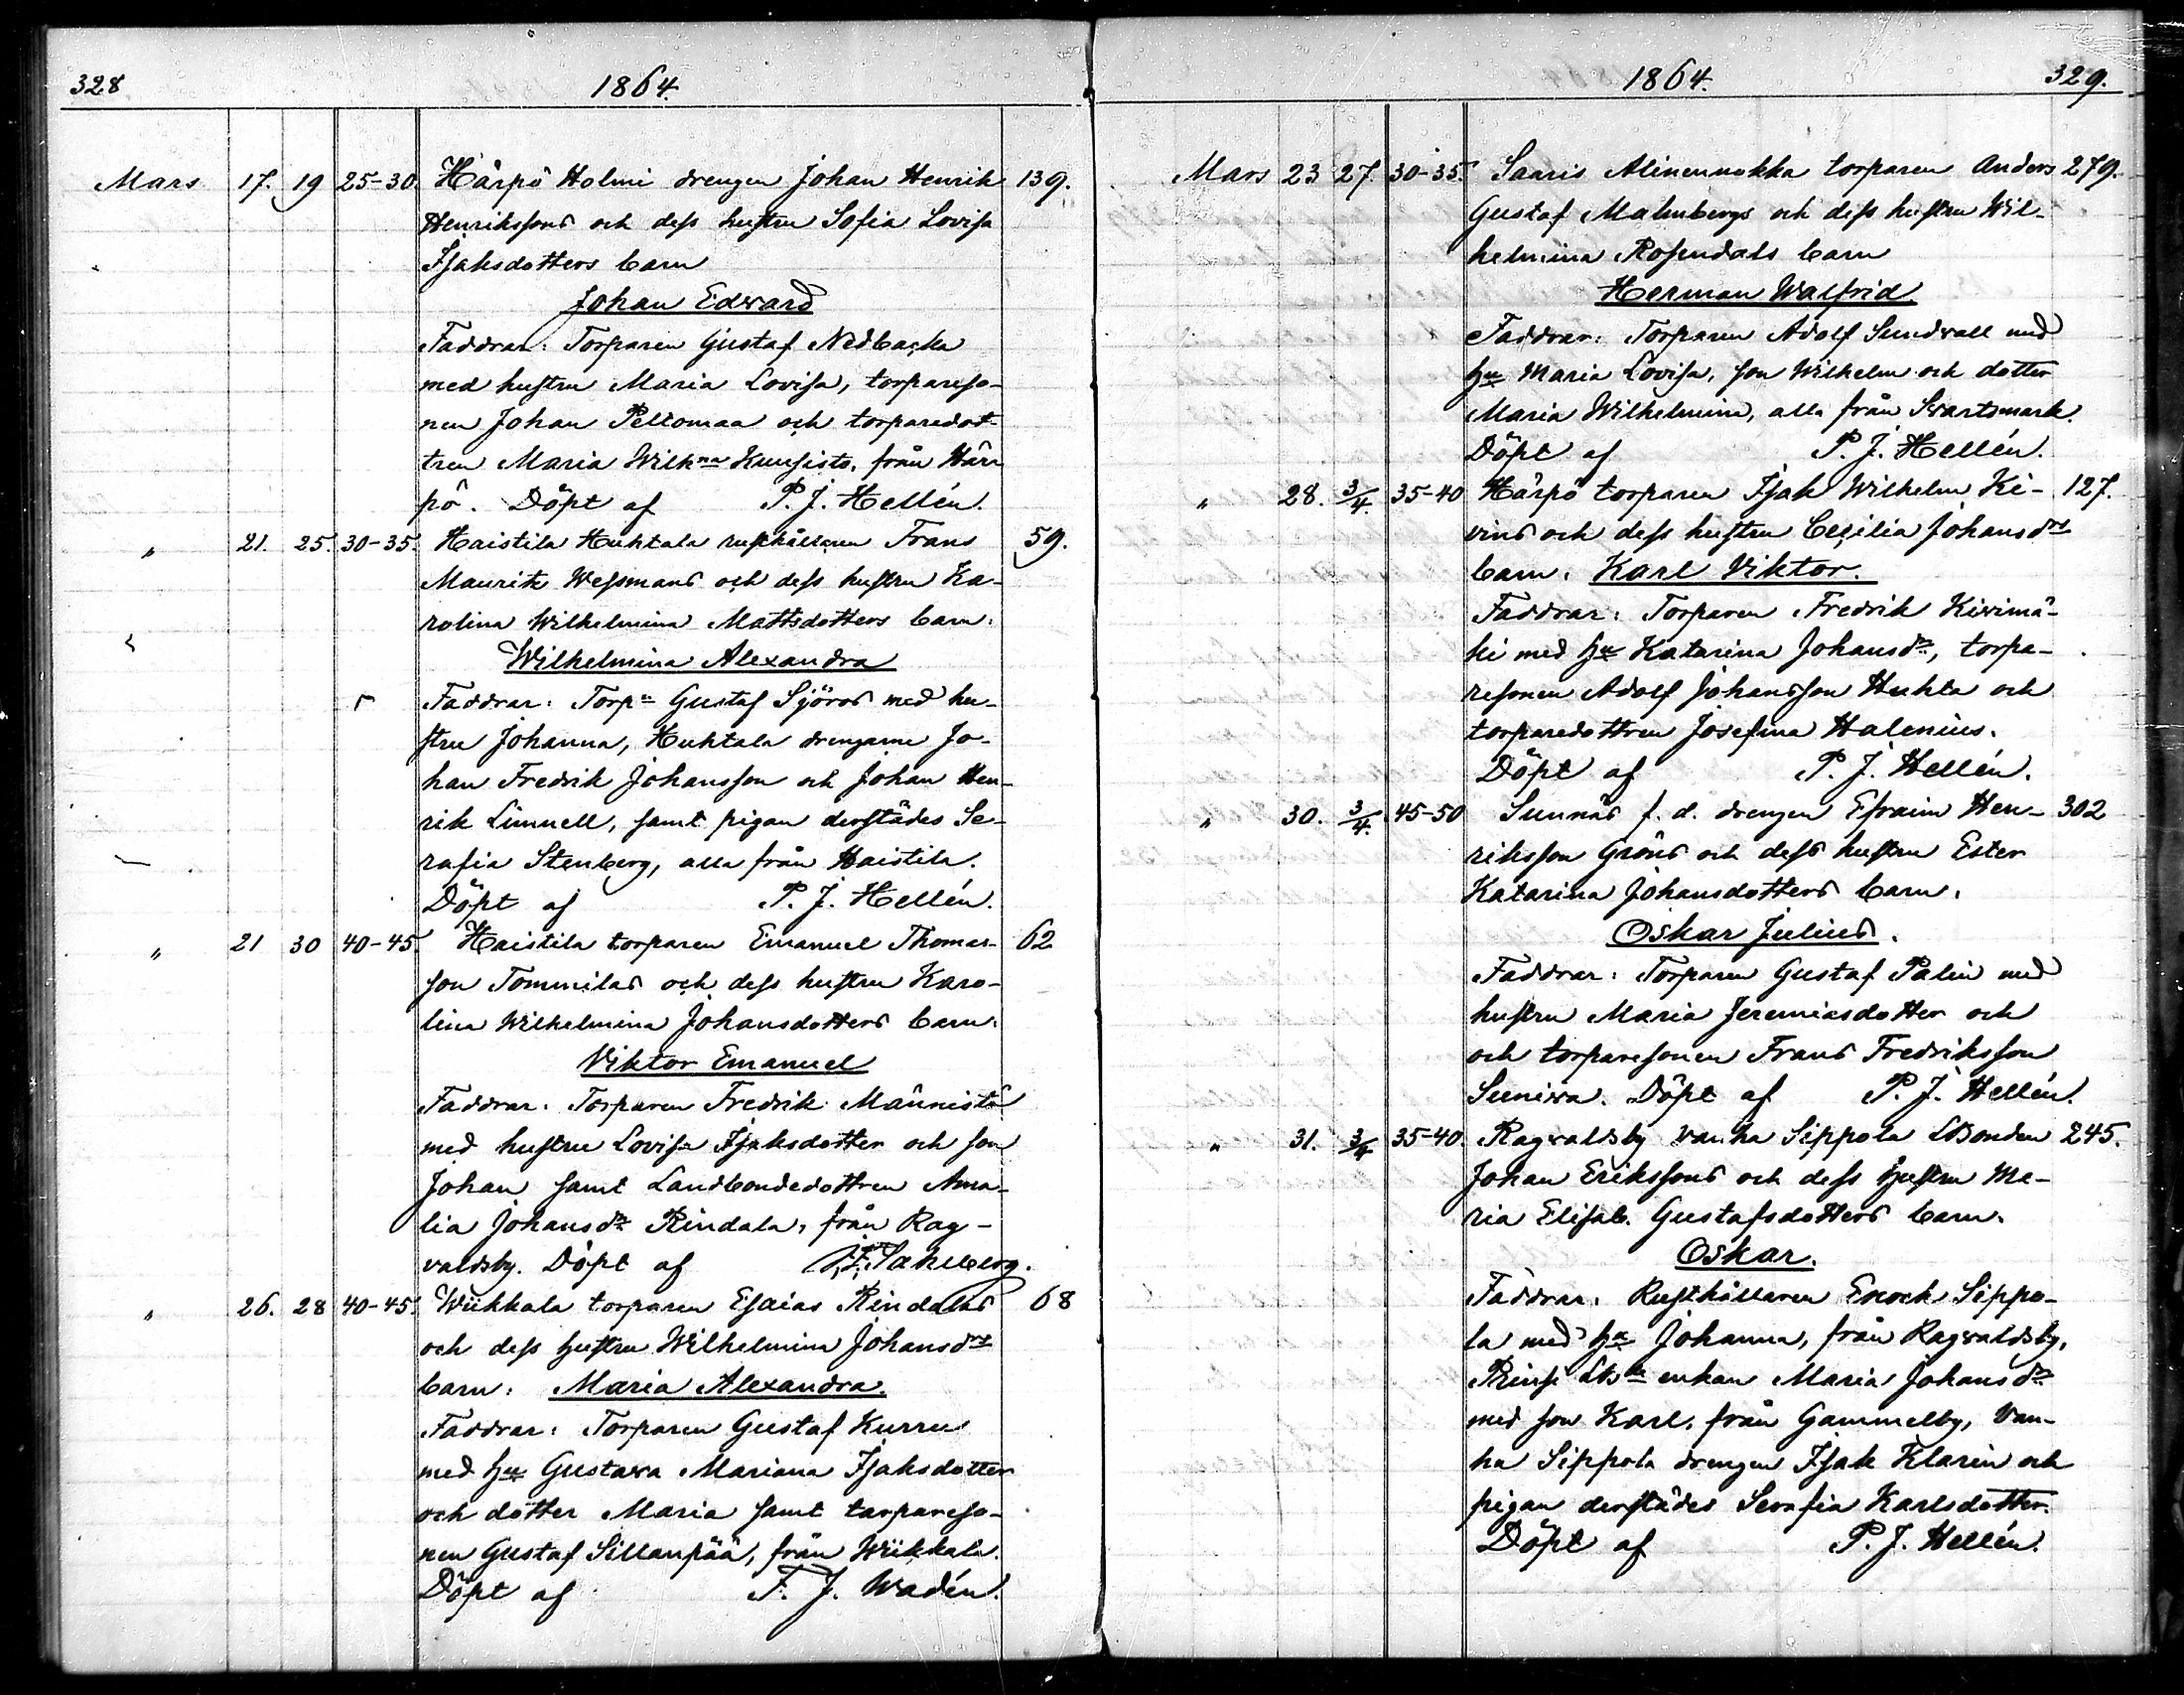 328
1864.
Mars 17. 19 25-30 Härpö Holmi drengen Johan Henrik 139.
Henrikssons och dess hustru Sofia Lovisa
Isaksdotters barn
Johan Edward
Faddrar: Torparen Gustaf Nedbacka
med hustru Maria Lovisa, torpareso-
nen Johan Peltomaa och torparedot-
tren Maria Wilhna Kuusisto, från Här-
pö. Döpt af P. J. Hellén.
" 21. 25. 30-35. Haistila Huhtala rusthållaren Frans 59.
Maurik Wessmans och dess hustru Ka-
rolina Wilhelmina Mattsdotters barn:
Wilhelmina Alexandra
Faddrar: Torpn Gustaf Sjöros med hu-
stru Johanna, Huhtala drengarne Jo-
han Fredrik Johansson och Johan Hen-
rik Limnell, samt pigan derstädes Se-
rafia Stenberg, alla från Haistila.
Döpt af P. J. Hellén.
" 21 30 40-45. Haistila torparen Emanuel Thomas- 62
son Tommilas och dess hustru Karo-
lina Wilhelmina Johansdotters barn:
Viktor Emanuel
Faddrar: Torparen Fredrik Männistö
med hustru Lovisa Isaksdotter och son
Johan samt Landbondedottren Ama-
lia Johansdr Rindala, från Rag-
valdsby. Döpt af Sahlberg.
" 26. 28 40-45. Wiikkala torparen Esaias Rindalas 68
och dess hustru Wilhelmina Johansdrs
barn: Maria Alexandra.
Faddrar: Torparen Gustaf Kurru
med hu Gustava Mariana Isaksdotter
och dotter Maria samt torpareso-
nen Gustaf Sillanpää, från Wiikkala.
Döpt af F. J. Wadén.
1864.
329.
Mars 23 27. 30-35. Saaris Alinennokka torparen Anders 279.
Gustaf Malmbergs och dess hustru Wil-
helmina Rosendals barn
Herman Walfrid
Faddrar: Torparen Adolf Sundvall med
hu Maria Lovisa, son Wilhelm och dotter
Maria Wilhelmina, alla från Svartsmark.
Döpt af P. J. Hellén.
" 28. 3/4. 35-40 Härpö torparen Isak Wilhelm Ki- 127.
vins och dess hustru Cecilia Johansdrs
barn: Karl Viktor.
Faddrar: Torparen Fredrik Kivimä-
ki med hu Katarina Johansdr, torpa-
resonen Adolf Johansson Huhta och
torparedottren Josefina Halenius.
Döpt af P. J. Hellén.
" 30. 3/4. 45-50 Sunnäs f. d. drengen Efraim Hen- 302
riksson Gröns och dess hustru Ester
Katarina Johansdotters barn.
Oskar Julius.
Faddrar: Torparen Gustaf Palin med
hustru Maria Jeremiasdotter och
och torparesonen Frans Fredriksson
Suniva. Döpt af P. J. Hellén.
" 31. 3/4 35-40. Ragvaldsby Vanha Sippola Lbonden 245.
Johan Erikssons och dess hustru Ma-
ria Elisab. Gustafsdotters barn.
Oskar.
Faddrar: Rusthållaren Enock Sippo-
la med hu Johanna, från Ragvaldsby,
enkan Maria Johansdr
med son Karl, från Gammelby, Van-
ha Sippola drengen Isak Klarin och
pigan derstädes Serafia Karlsdotter.
Döpt af P. J. Hellén.